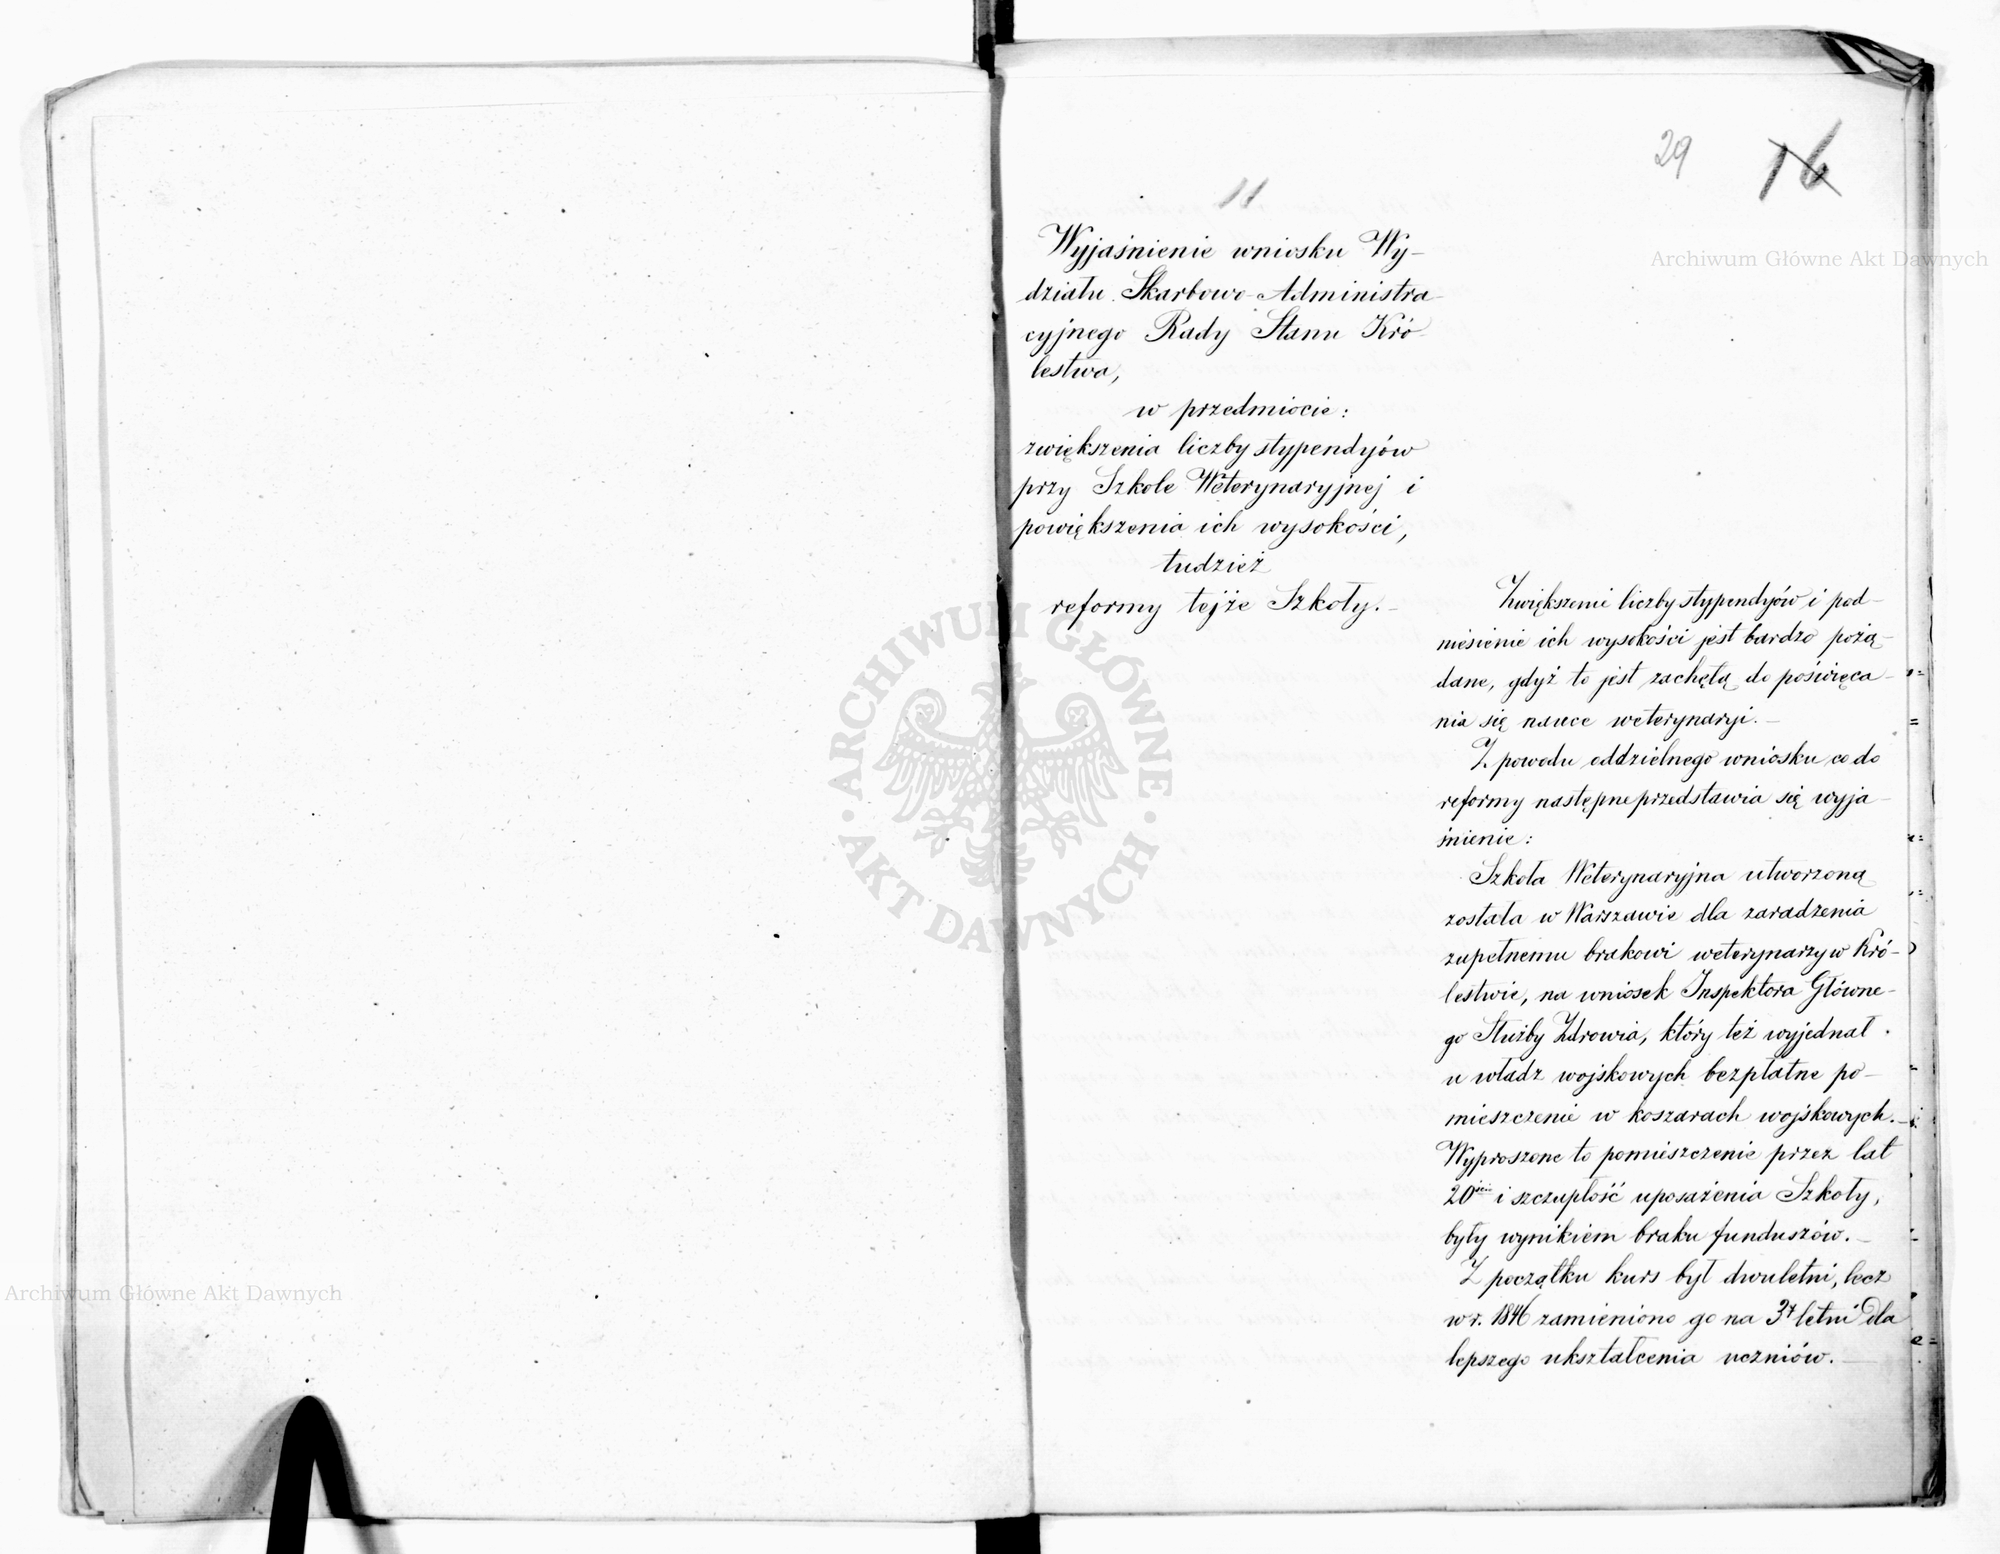 29 16
11
Wyjaśnienie wniosku Wy-
działu Skarbowo-Administra-
cyjnego Rady Stanu Kró-
lestwa,
w przedmiocie:
zwiększenia liczby stypendyjów
przy Szkole Weterynaryjnej i
powiększenia ich wysokości,
tudzież
reformy tejże Szkoły.-
Zwiększenie liczby stypendyjów i pod-
niesienie ich wysokości jest bardzo pożą-
dane, gdyż to jest zachętą do poświęca-
nia się nauce weterynaryi.-
Z powodu oddzielnego wniosku co do
reformy następne przedstawia się wyja-
śnienie:
Szkoła Weterynaryjna utworzoną
została w Warszawie dla zaradzenia
zupełnemu brakowi weterynarzy w Kró-
lestwie, na wniosek Inspektora Główne-
go Służby Zdrowia, który też wyjednał
u władz wojskowych bezpłatne po-
mieszczenie w koszarach wojskowych.-
Wyproszone to pomieszczenie przez lat
20 i szczupłość uposażenia Szkoły,
były wynikiem braku funduszów.-
Z początku kurs był dwuletni, lecz
w r. 1846 zamieniono go na 3y letni dla
lepszego ukształcenia uczniów.-
Archiwum Główne Akt Dawnych
Archiwum Główne Akt Dawnych
ARCHIWUM GŁÓWNE
AKT DAWNYCH